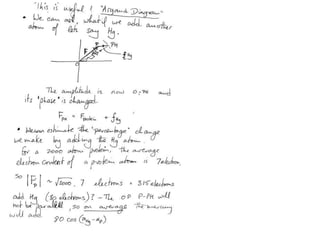 "This is useful! "Argand Diagram"
• We can ask, what if we add another
atom of lets say Hg.
F PH
P
F
fHg
O
The amplitude is now 0,90 and
its "phase" is changed.
FPH = Fprotein + fHg
• We can estimate the "percentage" change
we make by adding the Hg atom
for a 2000 atom protein, the average
electron content of a protein atom is 7 electron.
So |FP| ~ √2000 . 7 electrons = 315 electrons
add Hg (80 electrons)? - The OP P-PH will
not be parallel, so on average the mercury
will add 80 cos (αHg - αP)